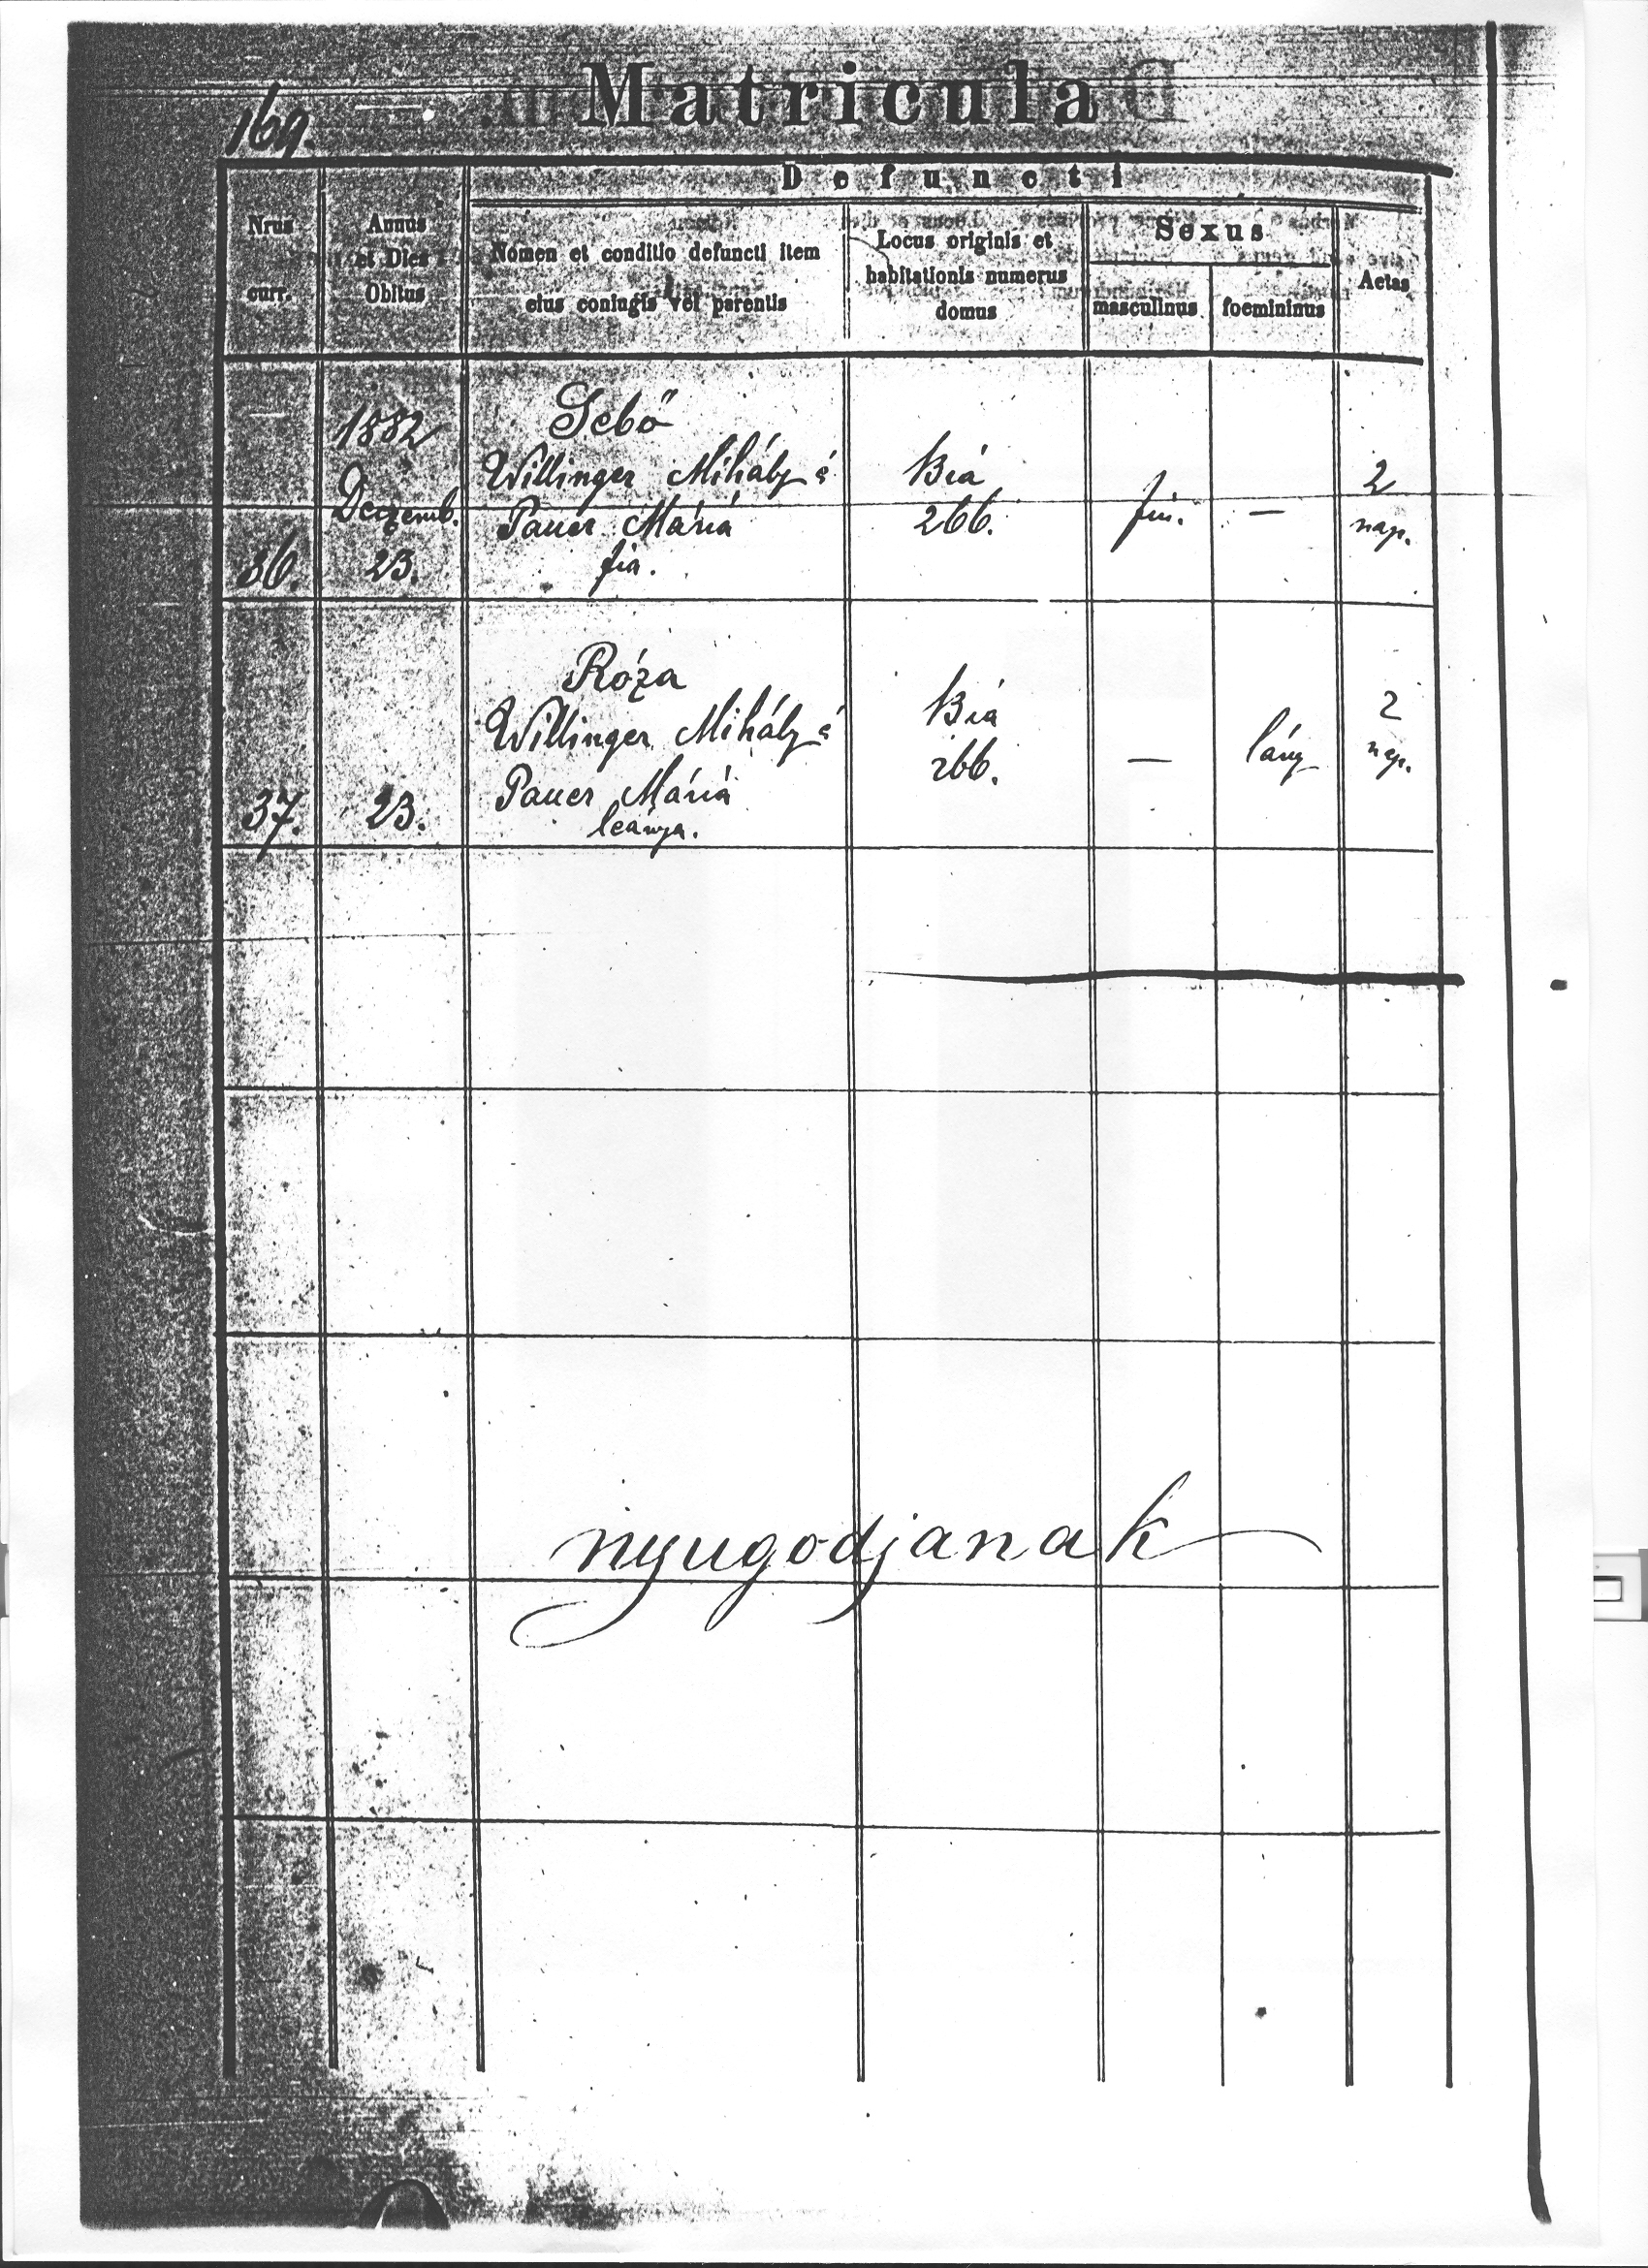 Matricula
169.
Defuncti
Nrus
curr.
Annus
et Dies
Obitus
Nomen et conditio defuncti item
eius coniugis vel parentis
Locus originis et
habitationis numerus
domus
Sexus
masculinus
foemininus
Aetas
36.
1882
Deczemb.
23.
Sebő
Willinger Mihály é
Pauer Mária
fia.
Biá
266.
fiu.
—
2
nap.
37.
23.
Róza
Willinger Mihály é
Pauer Mária
leánya.
Biá
266.
—
lány
2
nap.
nyugodjanak